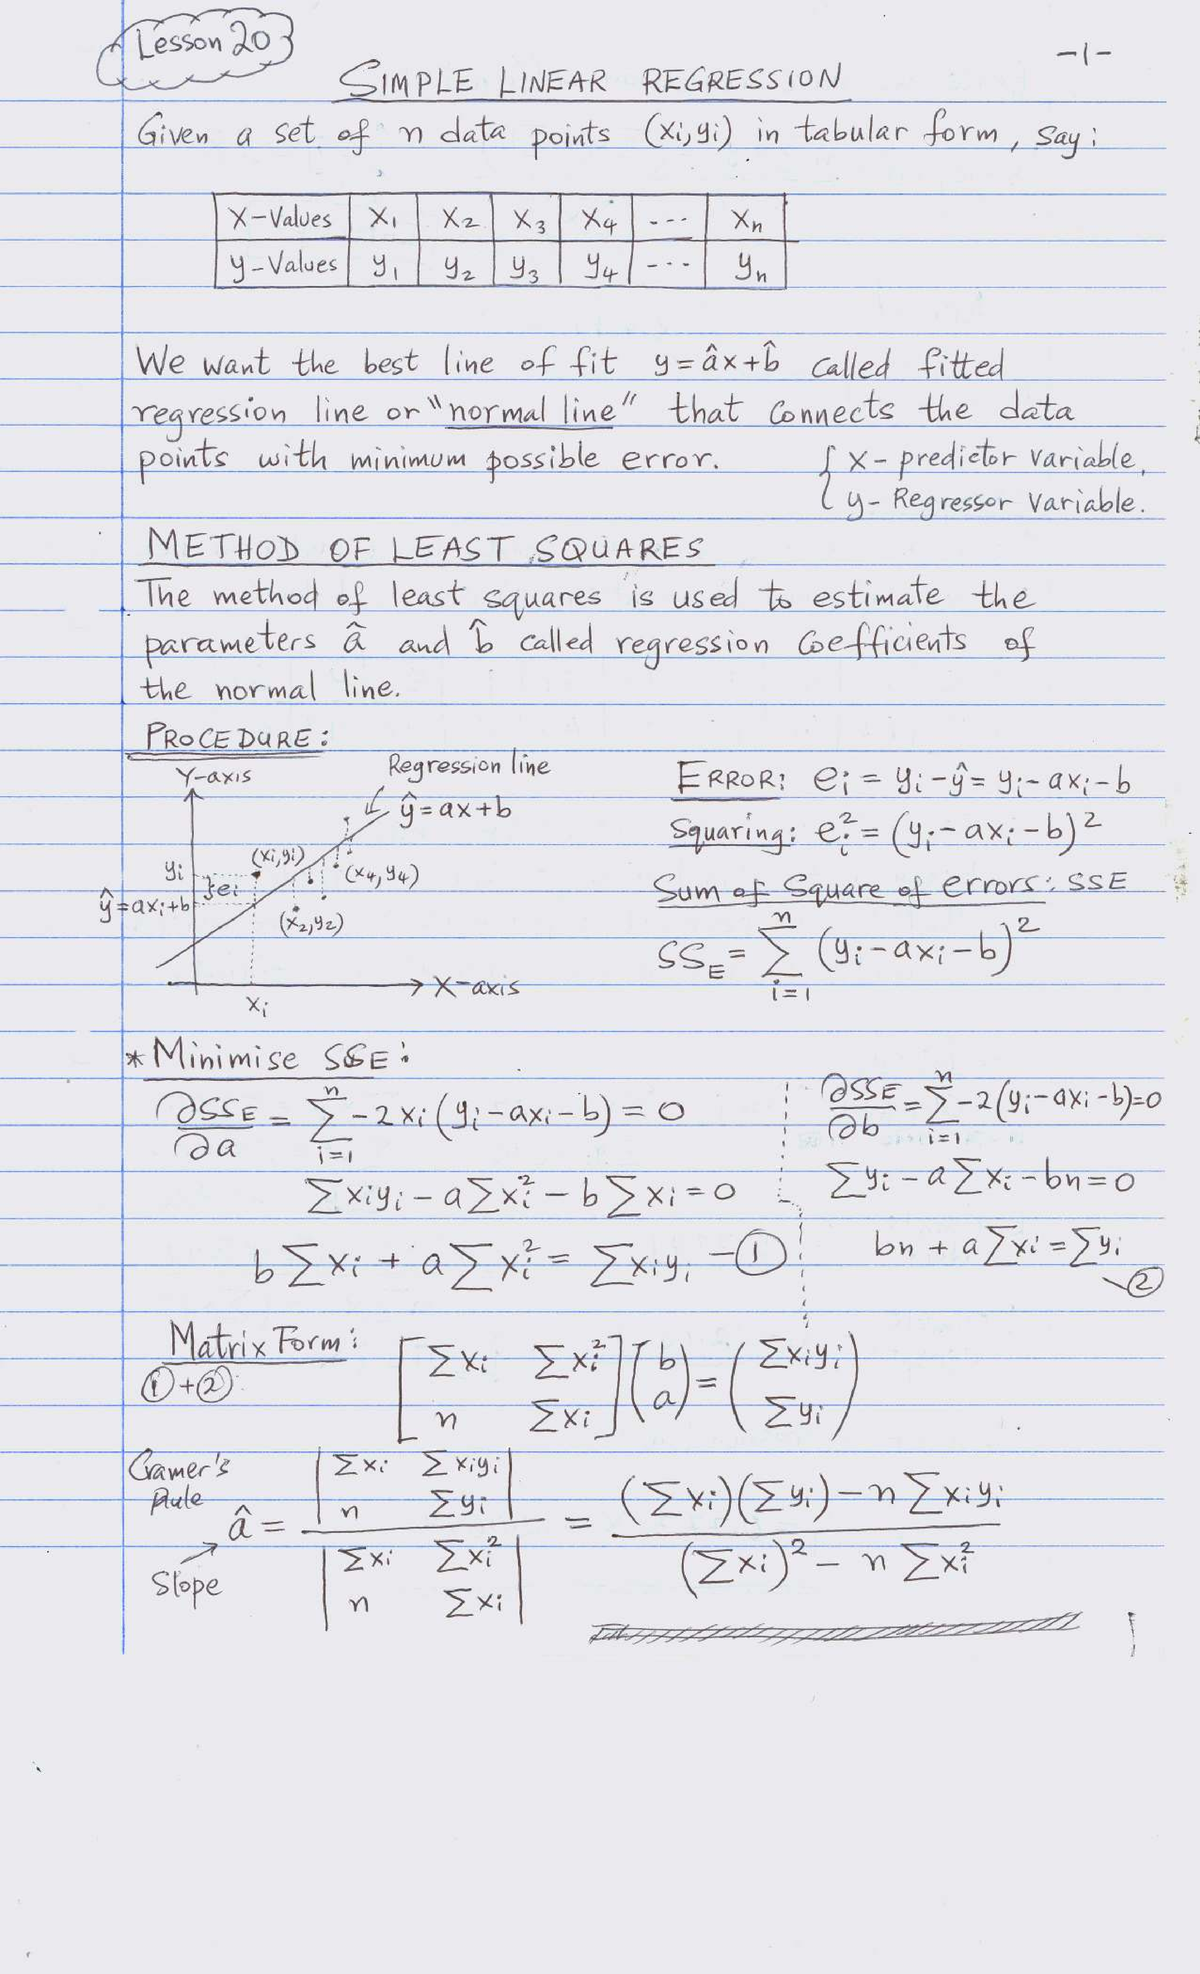 Lesson 20
-1-
SIMPLE LINEAR REGRESSION
Given a set of n data points (xi,yi) in tabular form, say:
X-Values X1 X2 X3 X4 --- Xn
y-Values y1 y2 y3 y4 --- yn
We want the best line of fit y = âx+b̂ called fitted
regression line or "normal line" that connects the data
points with minimum possible error.
{ x - predictor variable,
y - Regressor variable.
METHOD OF LEAST SQUARES
The method of least squares is used to estimate the
parameters â and b̂ called regression coefficients of
the normal line.
PROCEDURE:
Y-axis
Regression line
ŷ = ax+b
yi
(xi,yi)
}ei
(x4,y4)
ŷ = axi+b
(x2,y2)
X-axis
xi
ERROR: ei = yi - ŷ = yi - axi - b
Squaring: ei² = (yi - axi - b)²
Sum of Square of errors: SSE
SSE = Σ_{i=1}^{n} (yi - axi - b)²
* Minimise SSE:
∂SSE/∂a = Σ_{i=1}^{n} -2xi (yi - axi - b) = 0
Σxiyi - aΣxi² - bΣxi = 0
bΣxi + aΣxi² = Σxiyi - ①
∂SSE/∂b = Σ_{i=1}^{n} -2(yi - axi - b)=0
Σyi - aΣxi - bn = 0
bn + aΣxi = Σyi - ②
Matrix Form:
①+②:
[Σxi Σxi² ; n Σxi] (b ; a) = (Σxiyi ; Σyi)
Cramer's
Rule
Slope
â = |Σxi Σxiyi ; n Σyi| / |Σxi Σxi² ; n Σxi| = ((Σxi)(Σyi) - nΣxiyi) / ((Σxi)² - nΣxi²)